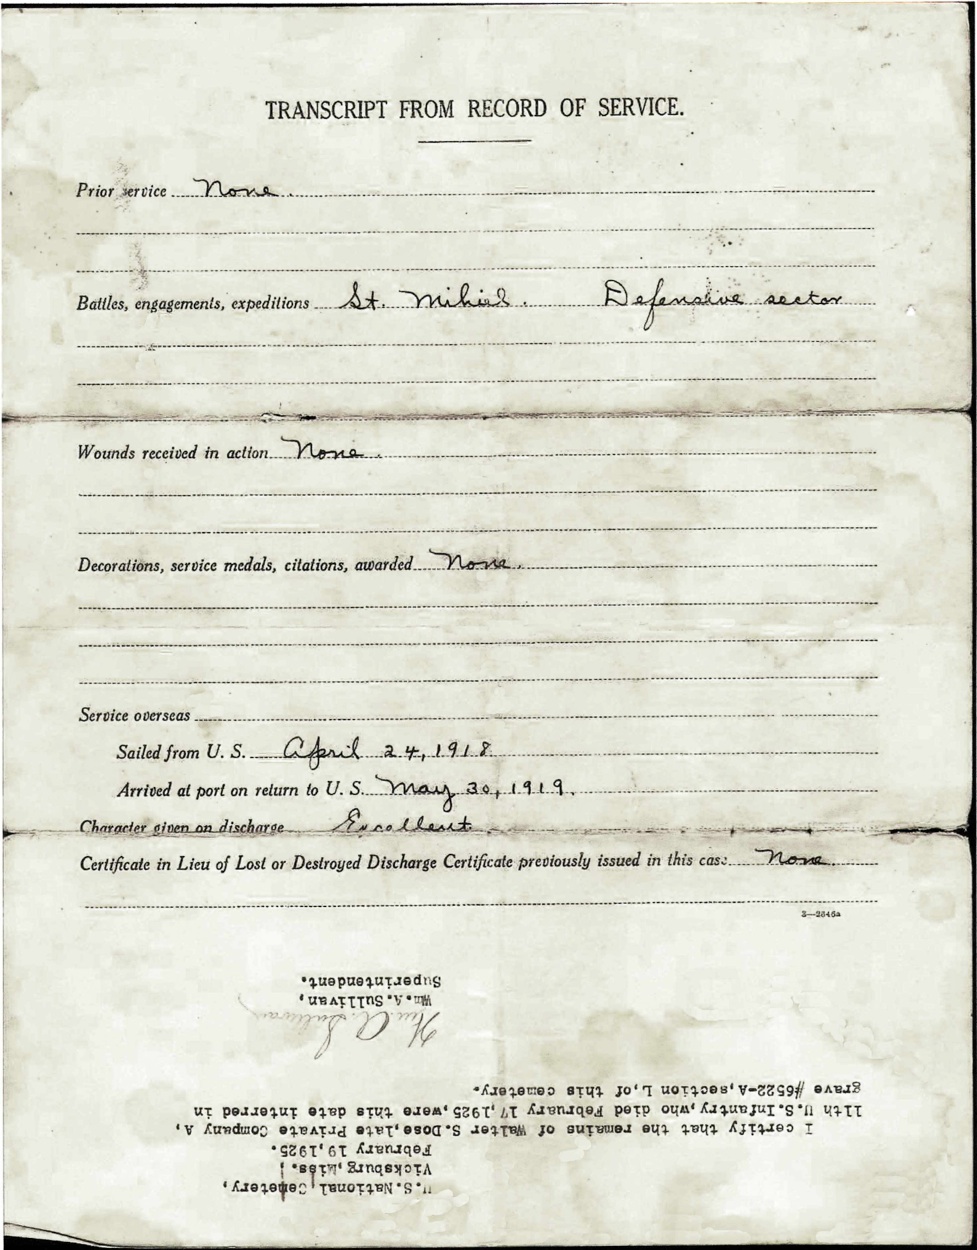 TRANSCRIPT FROM RECORD OF SERVICE.
Prior service None.
Battles, engagements, expeditions St. Mihiel. Defensive sector
Wounds received in action None.
Decorations, service medals, citations, awarded None.
Service overseas
Sailed from U. S. April 24, 1918
Arrived at port on return to U. S. May 30, 1919.
Character given on discharge Excellent.
Certificate in Lieu of Lost or Destroyed Discharge Certificate previously issued in this case None.
3—2646a
U.S.National Cemetery,
Vicksburg,Miss.,
February 19,1925.
I certify that the remains of Walter S.Dose,late Private Company A,
11th U.S.Infantry,who died February 17,1925,were this date interred in
grave #6522-A,section L,of this cemetery.
Wm A Sullivan
Wm.A.Sullivan,
Superintendent.